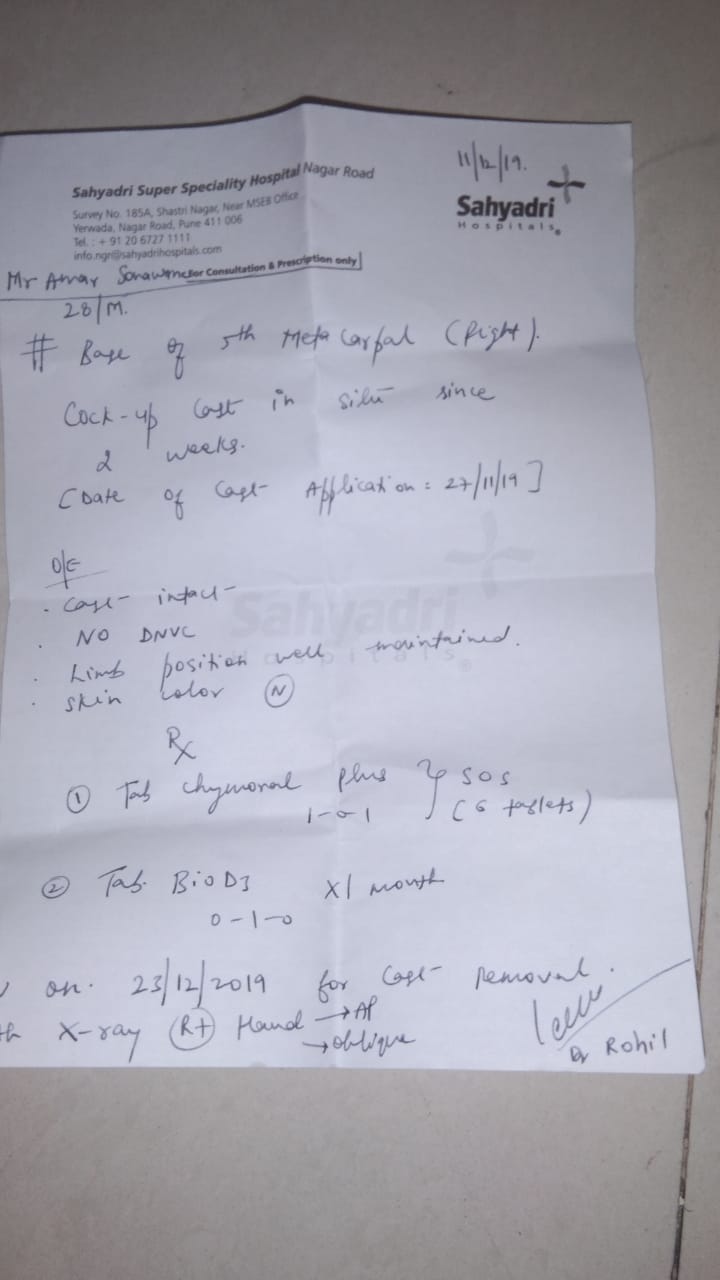 11/12/19.
Sahyadri Super Speciality Hospital Nagar Road
Survey No. 185A, Shastri Nagar, Near MSEB Office
Yerwada, Nagar Road, Pune 411 006
Tel. : + 91 20 6727 1111
info.ngr@sahyadrihospitals.com
Sahyadri
Hospitals
For Consultation & Prescription only
Mr Amar Sonawane
28/M.
# Base of 5th Metacarpal (Right).
Cock-up Cast in situ since
2 weeks.
[Date of Cast Application = 27/11/19]
O/E
. Cast intact
. NO DNVC
. Limb position well maintained.
. Skin color (N)
Sahyadri
Hospitals
Rx
① Tab chymoral plus } SOS
1-0-1 (6 tablets)
② Tab. BioD3 x1 month
0-1-0
on. 23/12/2019 for Cast removal.
X-ray (Rt) Hand → AP
→ oblique
Dr Rohil